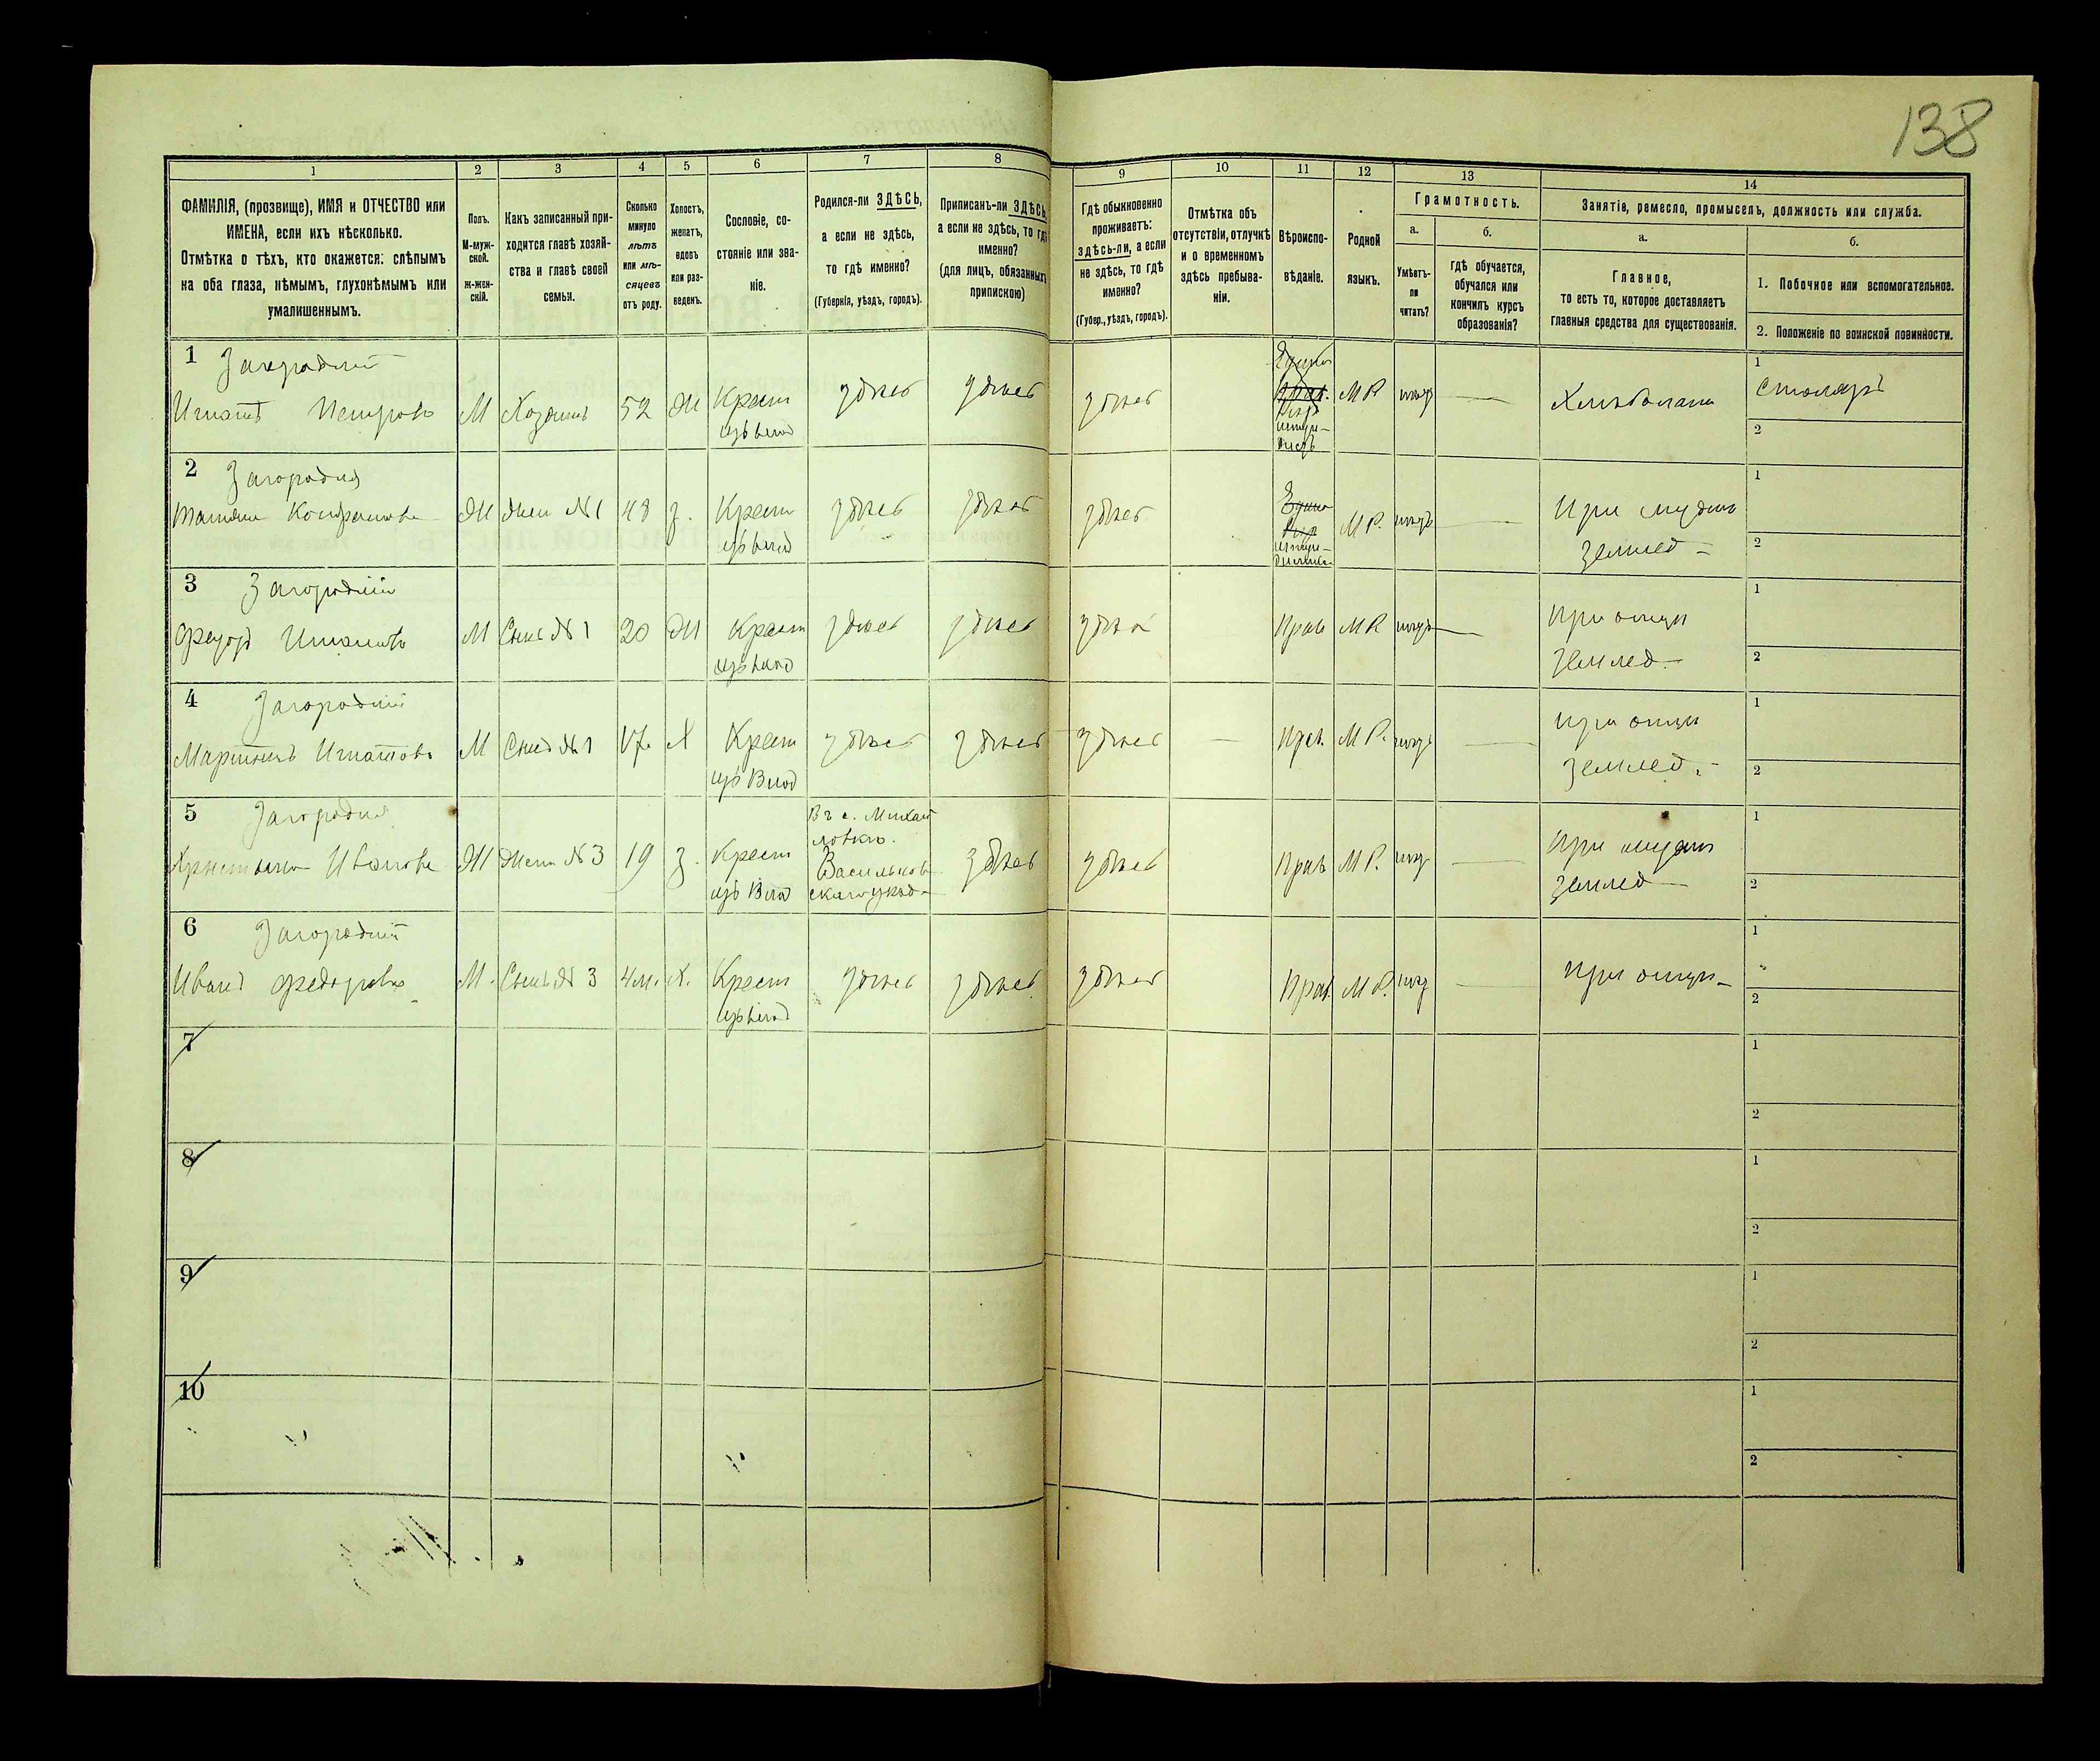 138
1 2 3 4 5 6 7 8 9 10 11 12 13 14
ФАМИЛІЯ, (прозвище), ИМЯ и ОТЧЕСТВО или
ИМЕНА, если ихъ нѣсколько.
Отмѣтка о тѣхъ, кто окажется: слѣпымъ
на оба глаза, нѣмымъ, глухонѣмымъ или
умалишеннымъ.
Полъ.
М-муж-
ской.
Ж-жен-
скій.
Какъ записанный при-
ходится главѣ хозяй-
ства и главѣ своей
семьи.
Сколько
минуло
лѣтъ
или мѣ-
сяцевъ
отъ роду.
Холостъ,
женатъ,
вдовъ
или раз-
веденъ.
Сословіе, со-
стояніе или зва-
ніе.
Родился-ли ЗДѢСЬ,
а если не здѣсь,
то гдѣ именно?
(Губернія, уѣздъ, городъ).
Приписанъ-ли ЗДѢСЬ,
а если не здѣсь, то гдѣ
именно?
(для лицъ, обязанныхъ
припискою)
Гдѣ обыкновенно
проживаетъ:
ЗДѢСЬ-ли, а если
не здѣсь, то гдѣ
именно?
(Губер., уѣздъ, городъ).
Отмѣтка объ
отсутствіи, отлучкѣ
и о временномъ
здѣсь пребыва-
ніи.
Вѣроиспо-
вѣданіе.
Родной
языкъ.
Грамотность.
а.
Умѣетъ-
ли
читать?
б.
гдѣ обучается,
обучался или
кончилъ курсъ
образованія?
Занятіе, ремесло, промыселъ, должность или служба.
а.
Главное,
то есть то, которое доставляетъ
главныя средства для существованія.
б.
1. Побочное или вспомогательное.
2. Положеніе по воинской повинности.
1 Загородній
Игнатъ Петровъ М Хозяинъ 52 Ж Крест здѣсь здѣсь здѣсь М Р
изъ влад
1 Столяръ
2
2 Загородня
Жен №1 48 з. Крест здѣсь здѣсь здѣсь М Р.
изъ влад
При мужѣ
землед
1
2
3 Загородній
М Сынъ №1 20 Ж Крест здѣсь здѣсь Прав М Р
изъ влад
При отцѣ
землед
1
2
4 Загородній
Мартинъ Игнатовъ М Сынъ №1 17 Х Крест здѣсь здѣсь здѣсь Прав. М Р.
изъ Влад
При отцѣ
землед.
1
2
5 Загородня
Ивановна Ж Жена №3 19 з. Крест
изъ Влад
Въ с. Михай
ловкѣ.
Васильков
скаго уѣзд
здѣсь здѣсь Прав М Р.
При мужѣ
землед
1
2
6 Загородній
Иванъ Федоровъ М. Сынъ №3 4 м. Х. Крест здѣсь здѣсь здѣсь Прав. М Р.
изъ влад
При отцѣ
1
2
7
1
2
8
1
2
9
1
2
10
1
2